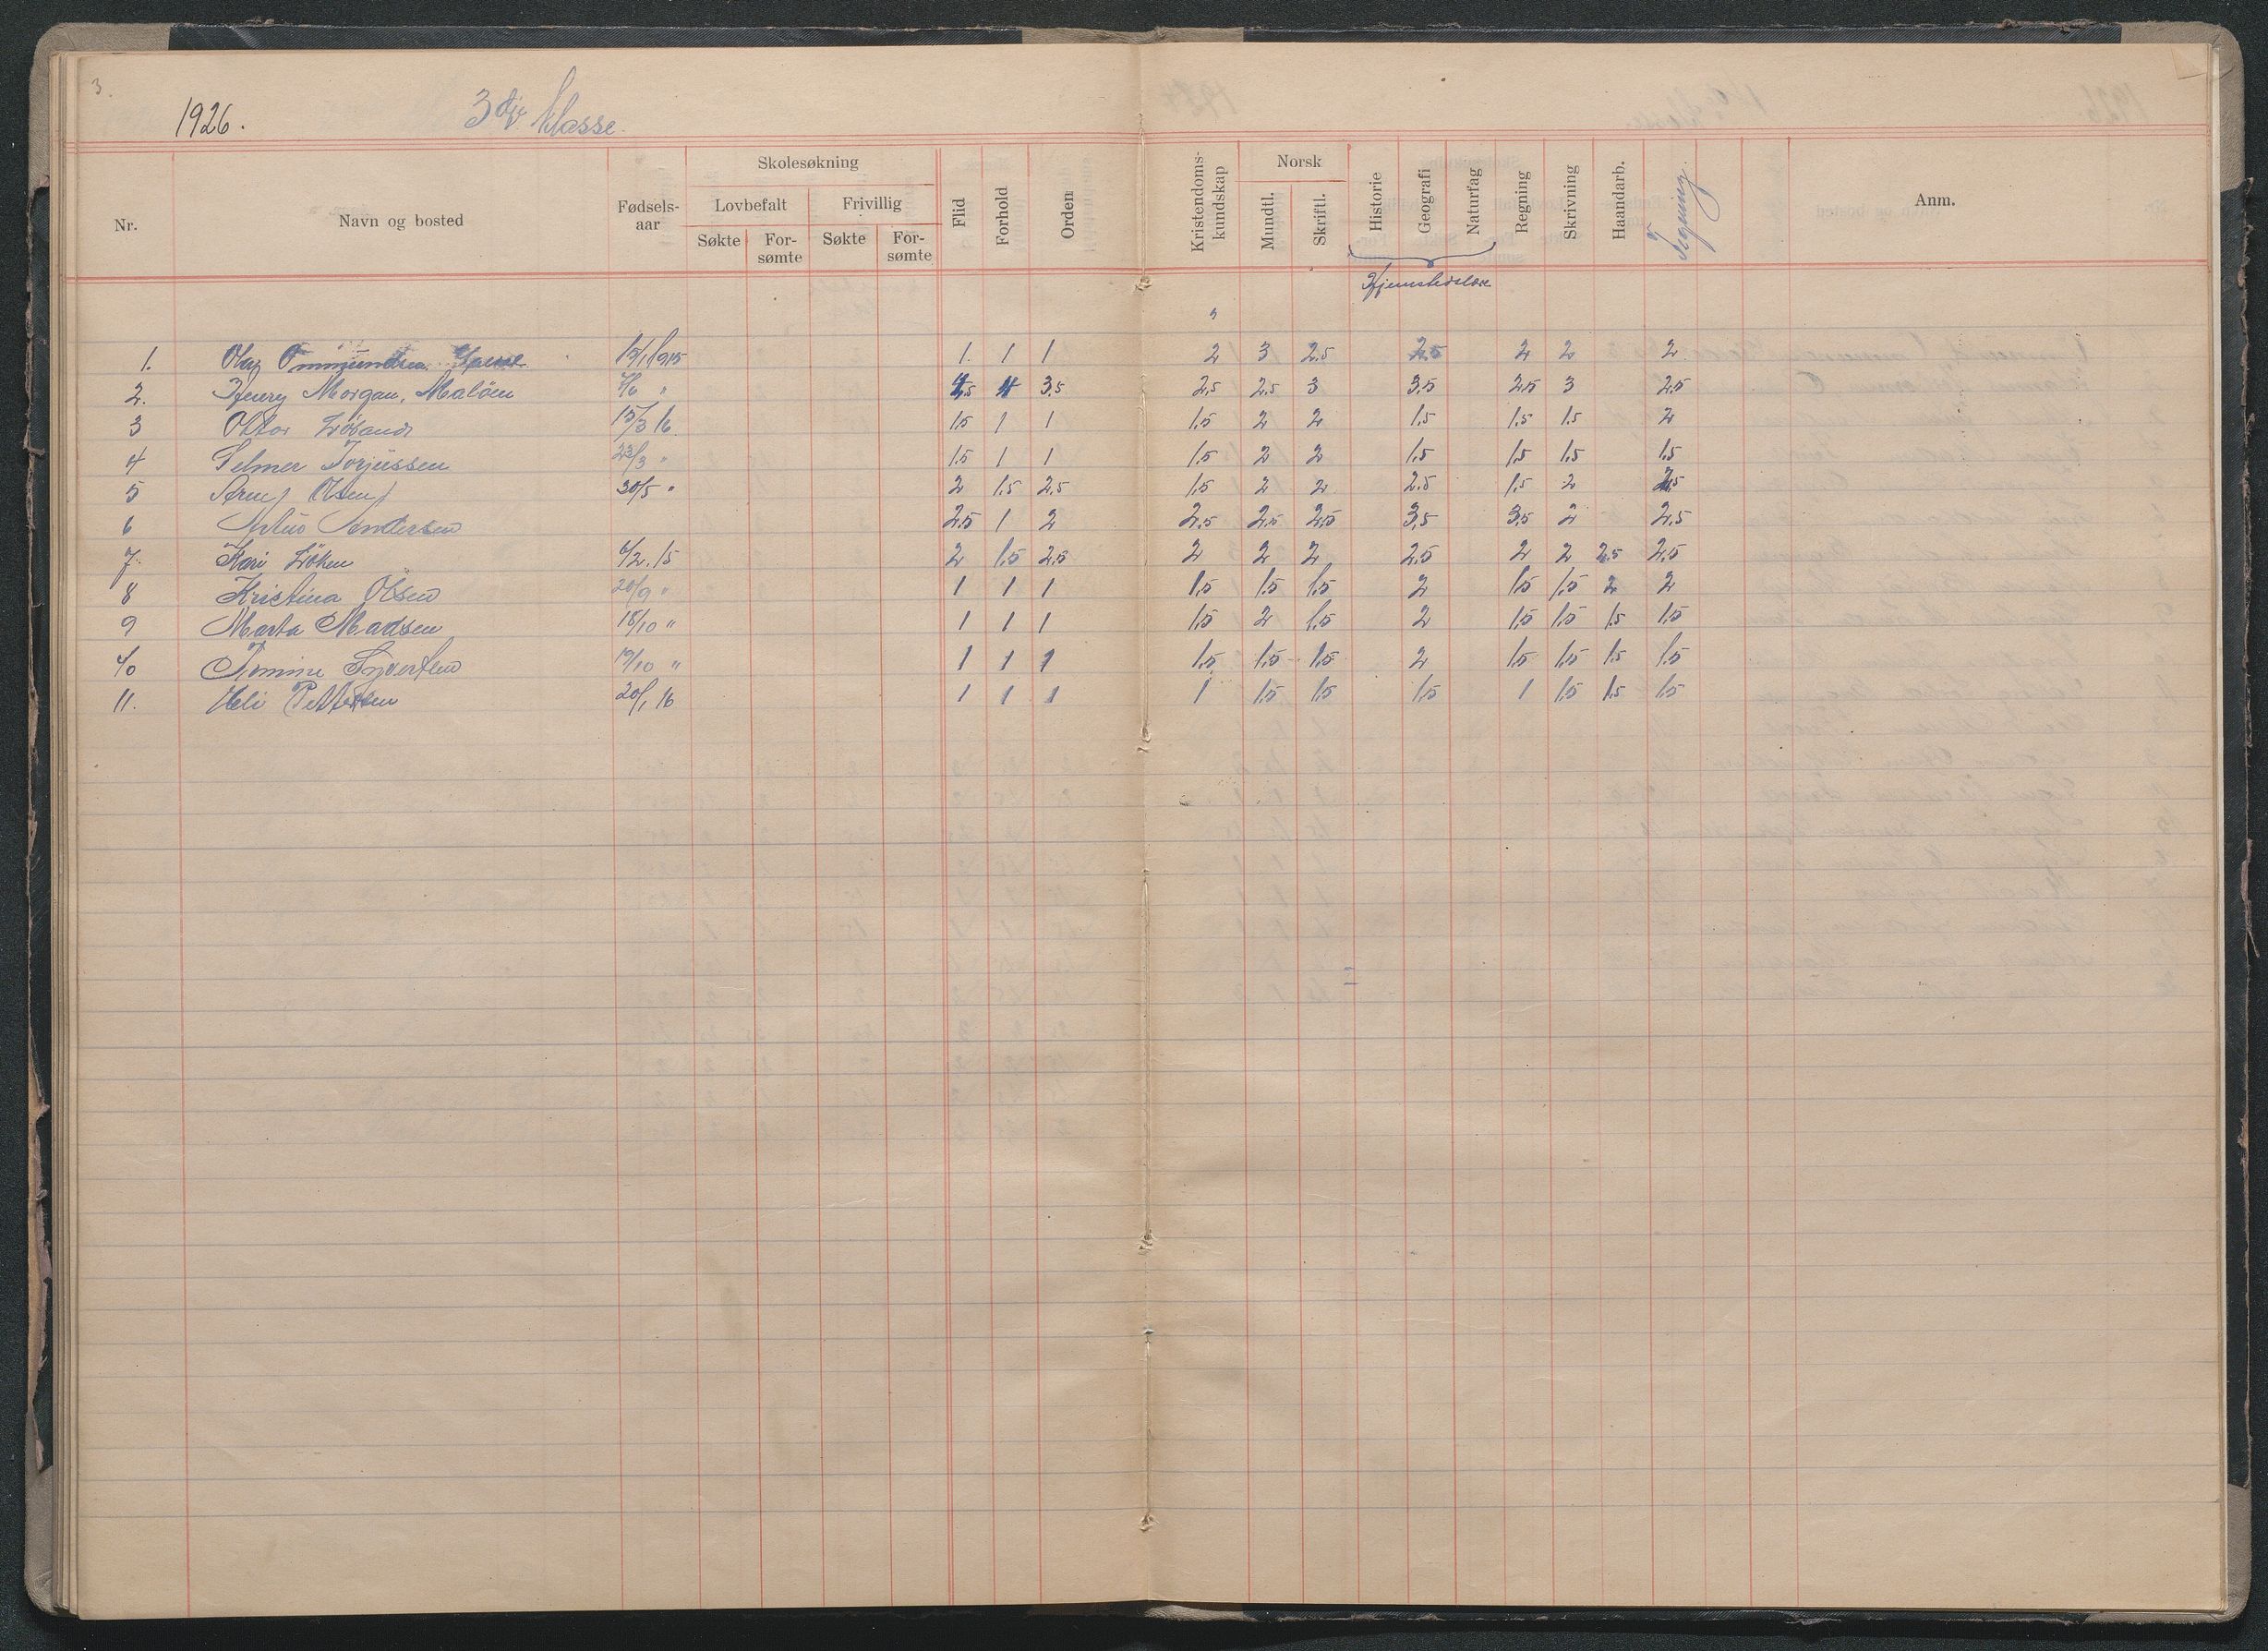 3.
1926. 3dje klasse.
Nr. Navn og bosted Fødselsaar Skolesøkning Lovbefalt Søkte Forsømte Frivillig Søkte Forsømte Flid Forhold Orden Kristendomskundskap Norsk Mundtl. Skriftl. Historie Geografi Naturfag Regning Skrivning Haandarb. Tegning. Anm.
Hjemstedslære
1. Olav Ommundsen 15/1 1915 1. 1 1 2 3 2.5 2.5 2 2 2
2. Henry Morgan, Maløen 4/6 " 3.5 2,5 2.5 3 3.5 2.5 3 2.5
3 Ottar 15/3 16 1.5 1 1 1.5 2 2 1.5 1.5 1.5 2
4 Selmer Torjussen 23/3 " 1.5 1 1 1.5 2 2 1.5 1.5 1.5 1.5
5 Olsen 30/5 " 2 1.5 2.5 1.5 2 2 2.5 1.5 2
6 Andersen 2.5 1 2 2.5 2.5 2.5 3,5 3.5 2 2.5
7. Kari Løken 6/2. 15 2 1.5 2.5 2 2 2 2.5 2 2 2.5 2.5
8 Kristina Olsen 20/9 " 1 1 1 1.5 1.5 1.5 2 1.5 1.5 2 2
9 Marta Madsen 18/10 " 1 1 1 1.5 2 1.5 2 1.5 1.5 1.5 1.5
10 Tomine Syvertsen 19/10 " 1 1 1 1.5 1.5 1.5 2 1.5 1.5 1.5 1.5
11. Pettersen 20/1 16 1 1 1 1 1.5 1.5 1.5 1 1.5 1.5 1.5